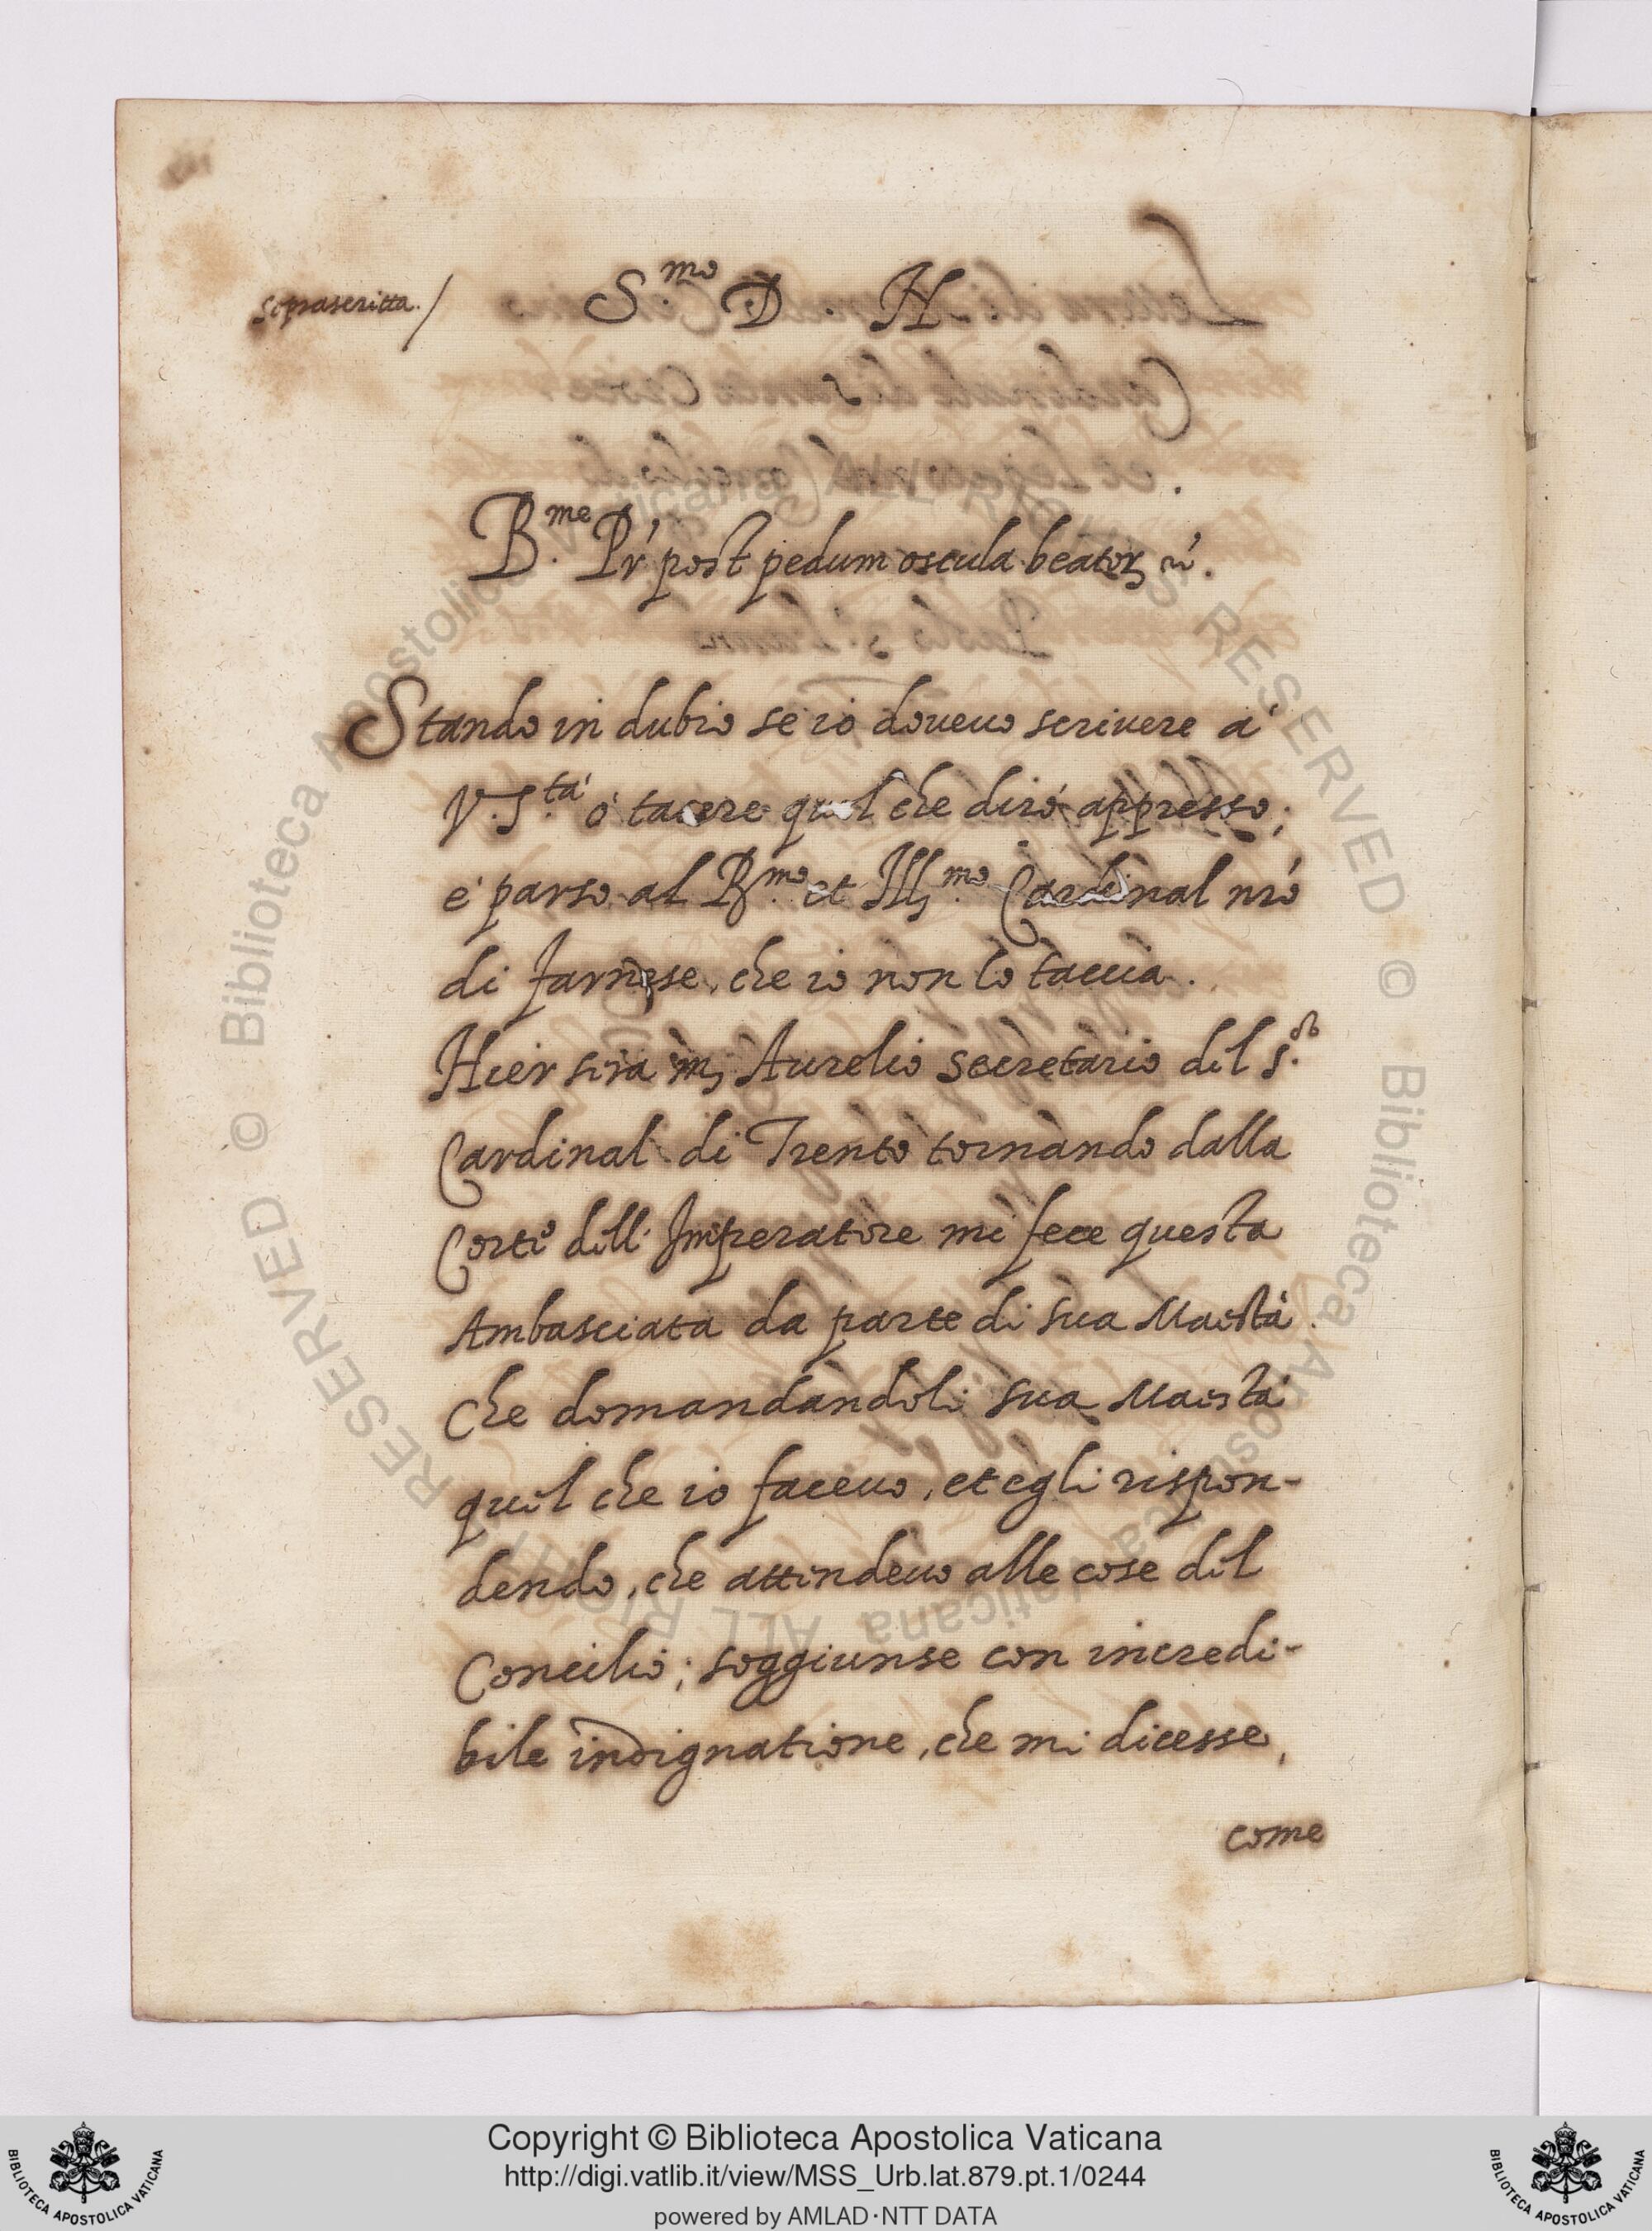 soprascritta./
S.mo D. N.
B.me Pr̃ post pedum oscula beator̃ &.
Stando in dubio se io doveuo scriuere a'
V. S.tà ò tacere quel che dirò appresso;
è parso al R.mo et Ill.mo Cardinal nrõ
di Farnese, che io non lo taccia.
Hier sera m̃ Aurelio secretario del S.or
Cardinal di Trento tornando dalla
Corte dell' Imperatore mi fece questa
Ambasciata da parte di sua Maestà.
Che domandandoli sua Maestà
quel che io faceuo, et egli rispon-
dendo, che attendeuo alle cose del
Concilio; soggiunse con incredi-
bile indignatione, che mi dicesse,
come
Biblioteca Apostolica Vaticana ALL RIGHTS RESERVED © Biblioteca Apostolica Vaticana ALL RIGHTS RESERVED ©
Copyright © Biblioteca Apostolica Vaticana
http://digi.vatlib.it/view/MSS_Urb.lat.879.pt.1/0244
powered by AMLAD·NTT DATA
BIBLIOTECA APOSTOLICA VATICANA
BIBLIOTECA APOSTOLICA VATICANA